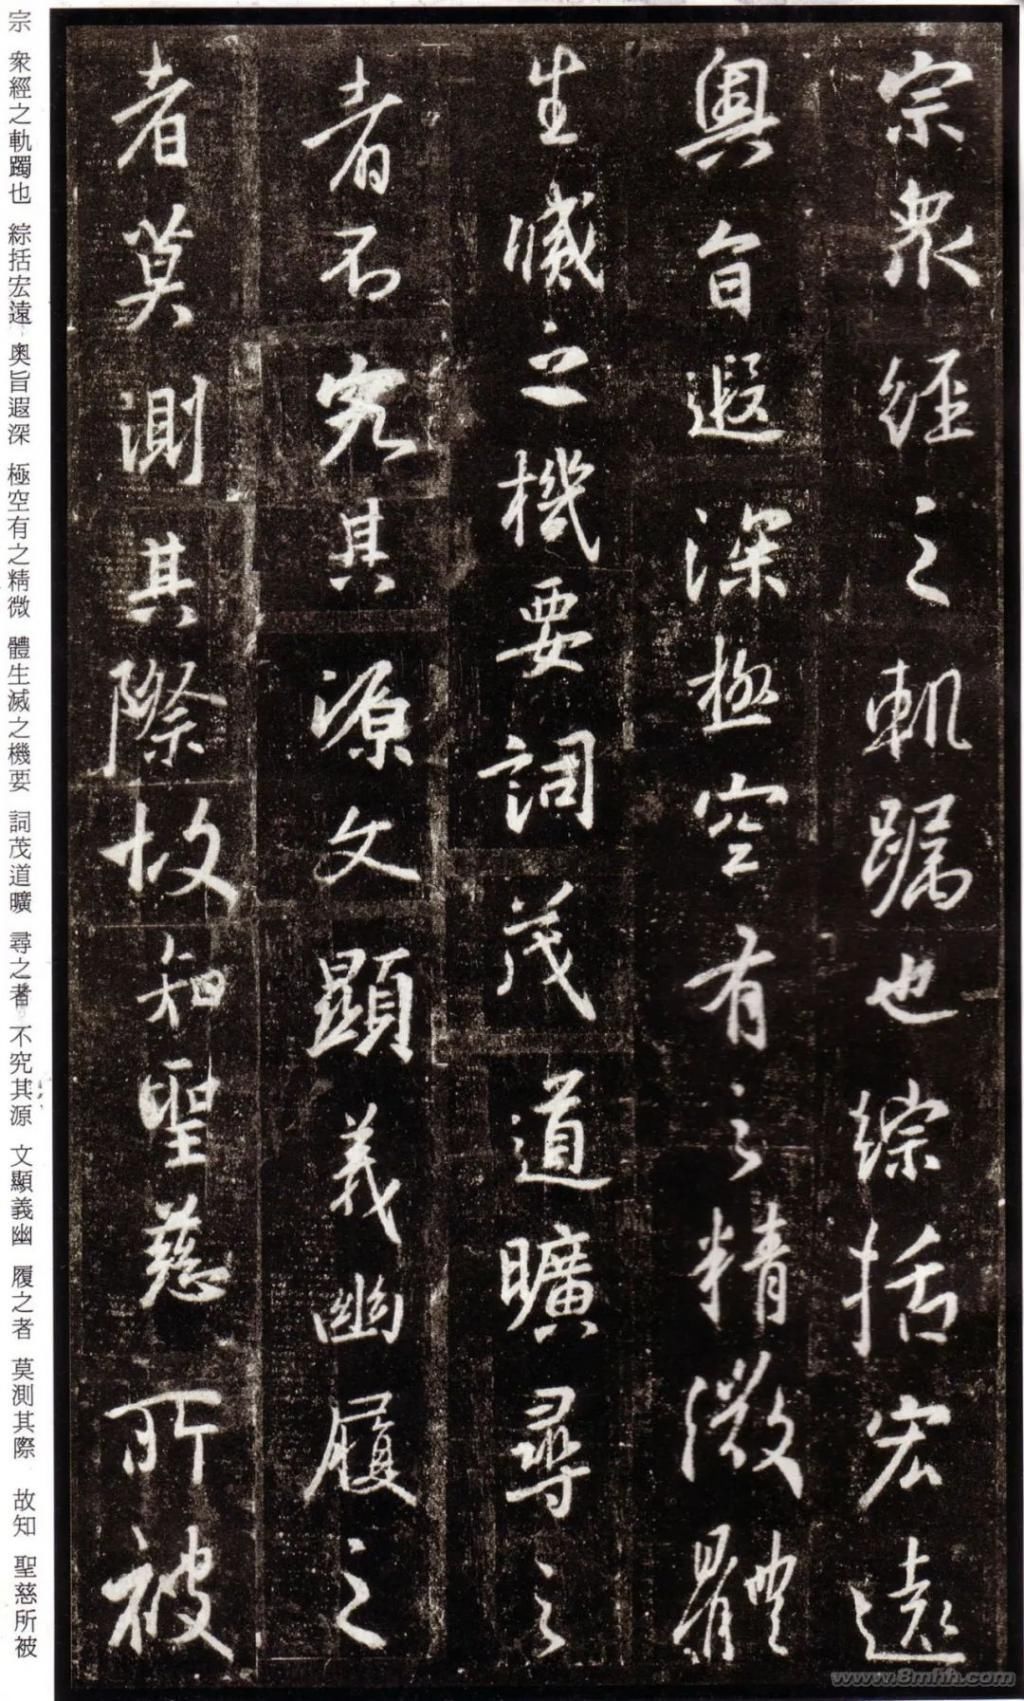 宗衆經之軌躅也綜括宏遠
奧旨遐深極空有之精微體
生滅之機要詞茂道曠尋之
者不究其源文顯義幽履之
者莫測其際故知聖慈所被
宗 衆經之軌躅也 綜括宏遠 奧旨遐深 極空有之精微 體生滅之機要 詞茂道曠 尋之者 不究其源 文顯義幽 履之者 莫測其際 故知 聖慈所被
www.8mhh.com